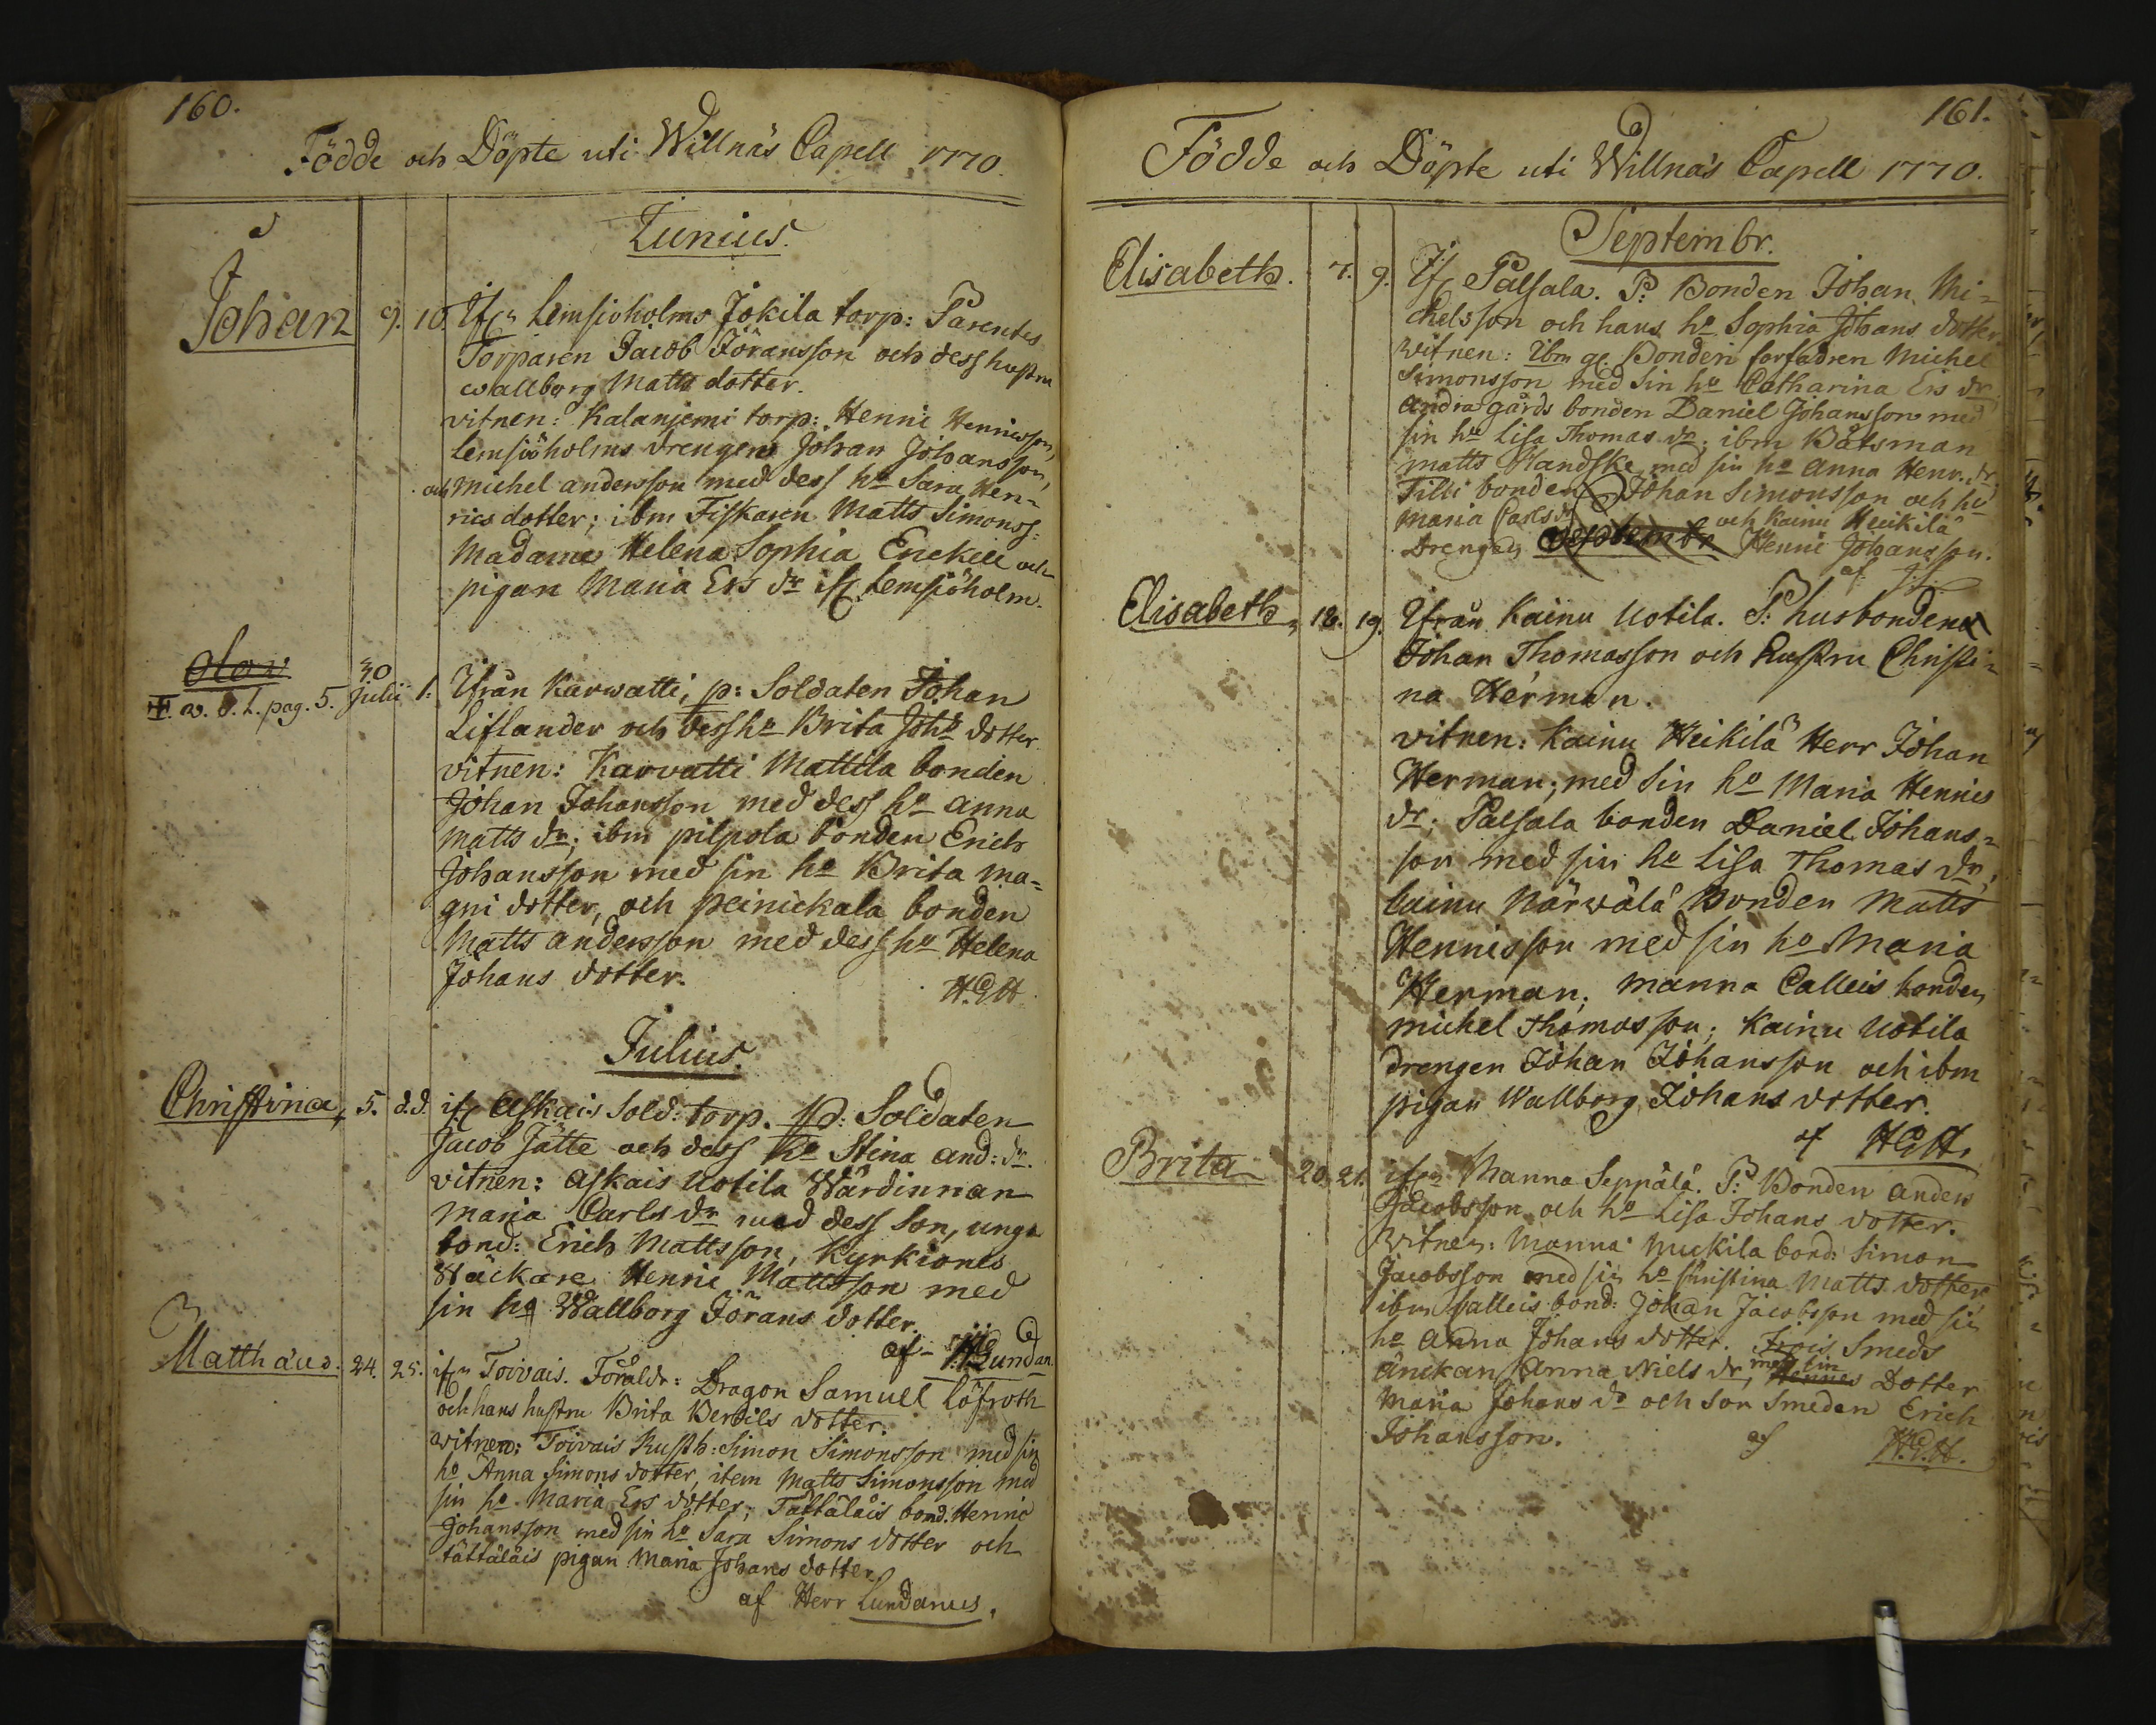 160.
Födde och Döpte uti Willnäs Capell 1770.
Junius.
Johan 9. 10. Ifrn Lemsiöholms Jokila torp: Parentes
Torparen Jacob Jöransson och dess hustru
Wallborg Matts dotter.
vitnen: Kalaniemi torp: Henric Henricsson,
Lemsiöholms drengen Johan Johansson,
och Michel andersson med dess ho Sara Hen-
rics dotter; ibm Fiskaren Matts Simonss:
Madame Helena Sophia Enckell och
pigan Maria Ers dr ifr Lemsiöholm.
Olov 30
Julii 1. Ifrån Karwatti, p: Soldaten Johan
w. d. L. pag. 5.
Liflander och dess ho Brita Joh: dotter
vitnen: Karvatti Mattila bonden
Johan Johansson med dess ho anna
Matts dr; ibm pilpola bonden Erich
Johansson med sin ho Brita ma=
gni dotter, och peinickala bonden
Matts andersson med dess ho Helena
Johans dotter.
H.G.H.
Julius.
Christina, 5. d.d. ifr Askais Sold: torp. P: Soldaten
Jacob Jätte och dess ho Stina and: dr.
vitnen: Askais Uotila Wärdinnan
Maria Carls dr med dess Son, unga
bond: Erich Mattsson, Kyrkiones
Wäckare Henric Mattsson med
sin ho Wallborg Jörans dotter.
af Lundan.
Matthäus. 24. 25. ifrn Toivais. Föräldr: Dragon Samuel Löfroth
och hans hustru Brita Bertils dotter.
witnen: Toivais Rusth: Simon Simonsson med sin
ho Anna Simons dotter, item Matts Simonsson med
sin ho Maria Ers dotter; Tattaläis bond. Henric
Johansson med sin ho Sara Simons dotter och
tättäläis pigan Maria Johans dotter.
af Herr Lundanus.
161.
Födde och Döpte uti Willnäs Capell 1770.
Septembr.
Elisabeth. 7. 9. Ifr Palsala. P: Bonden Johan Mi=
chelsson och hans ho Sophia Johans dotter
witnen: Ibm gl. Bonden farfadren Michel
Simonsson med sin ho Catharina Ers dr
andra gårds bonden Daniel Johansson med
sin ho Lisa Thomas dr; ibm Båtsman
Matts Handske med sin ho Anna Henr. dr
Tilli bonden Johan Simonsson och ho
Maria Carls dr och Kainu Heikilä
Drengen Septembr Henric Johansson.
af
Elisabeth, 18. 19. Ifrån Kainu Uotila. P: husbonden
Johan Thomasson och hustru Christi=
na Herman.
vitnen: Kainu Heikilä Herr Johan
Herman, med sin ho Maria Henrics
dr; Palsala bonden Daniel Johans=
son med sin ho Lisa Thomas dr,
kainu Närwälä Bonden Matts
Henricsson med sin ho Maria
Herman, manna Calleis bonden
michel Thomasson; Kainu Uotila
drengen Johan Johansson och ibm
pigan Wallborg Johans dotter.
af H.G.H.
Brita 20. 21. ifrn Manna Seppälä. P: Bonden anders
Jacobsson och ho Lisa Johans dotter.
Witnen: Manna Nuckila bond: Simon
Jacobsson med sin ho Christina Matts dotter
ibm Calleis bond: Johan Jacobsson med sin
ho anna Johans dotter. Frois Smeds
änckan Anna Niels dr, Hennes med sin Dotter
Maria Johans dr och son Smeden Erich
Johansson. af H.G.H.